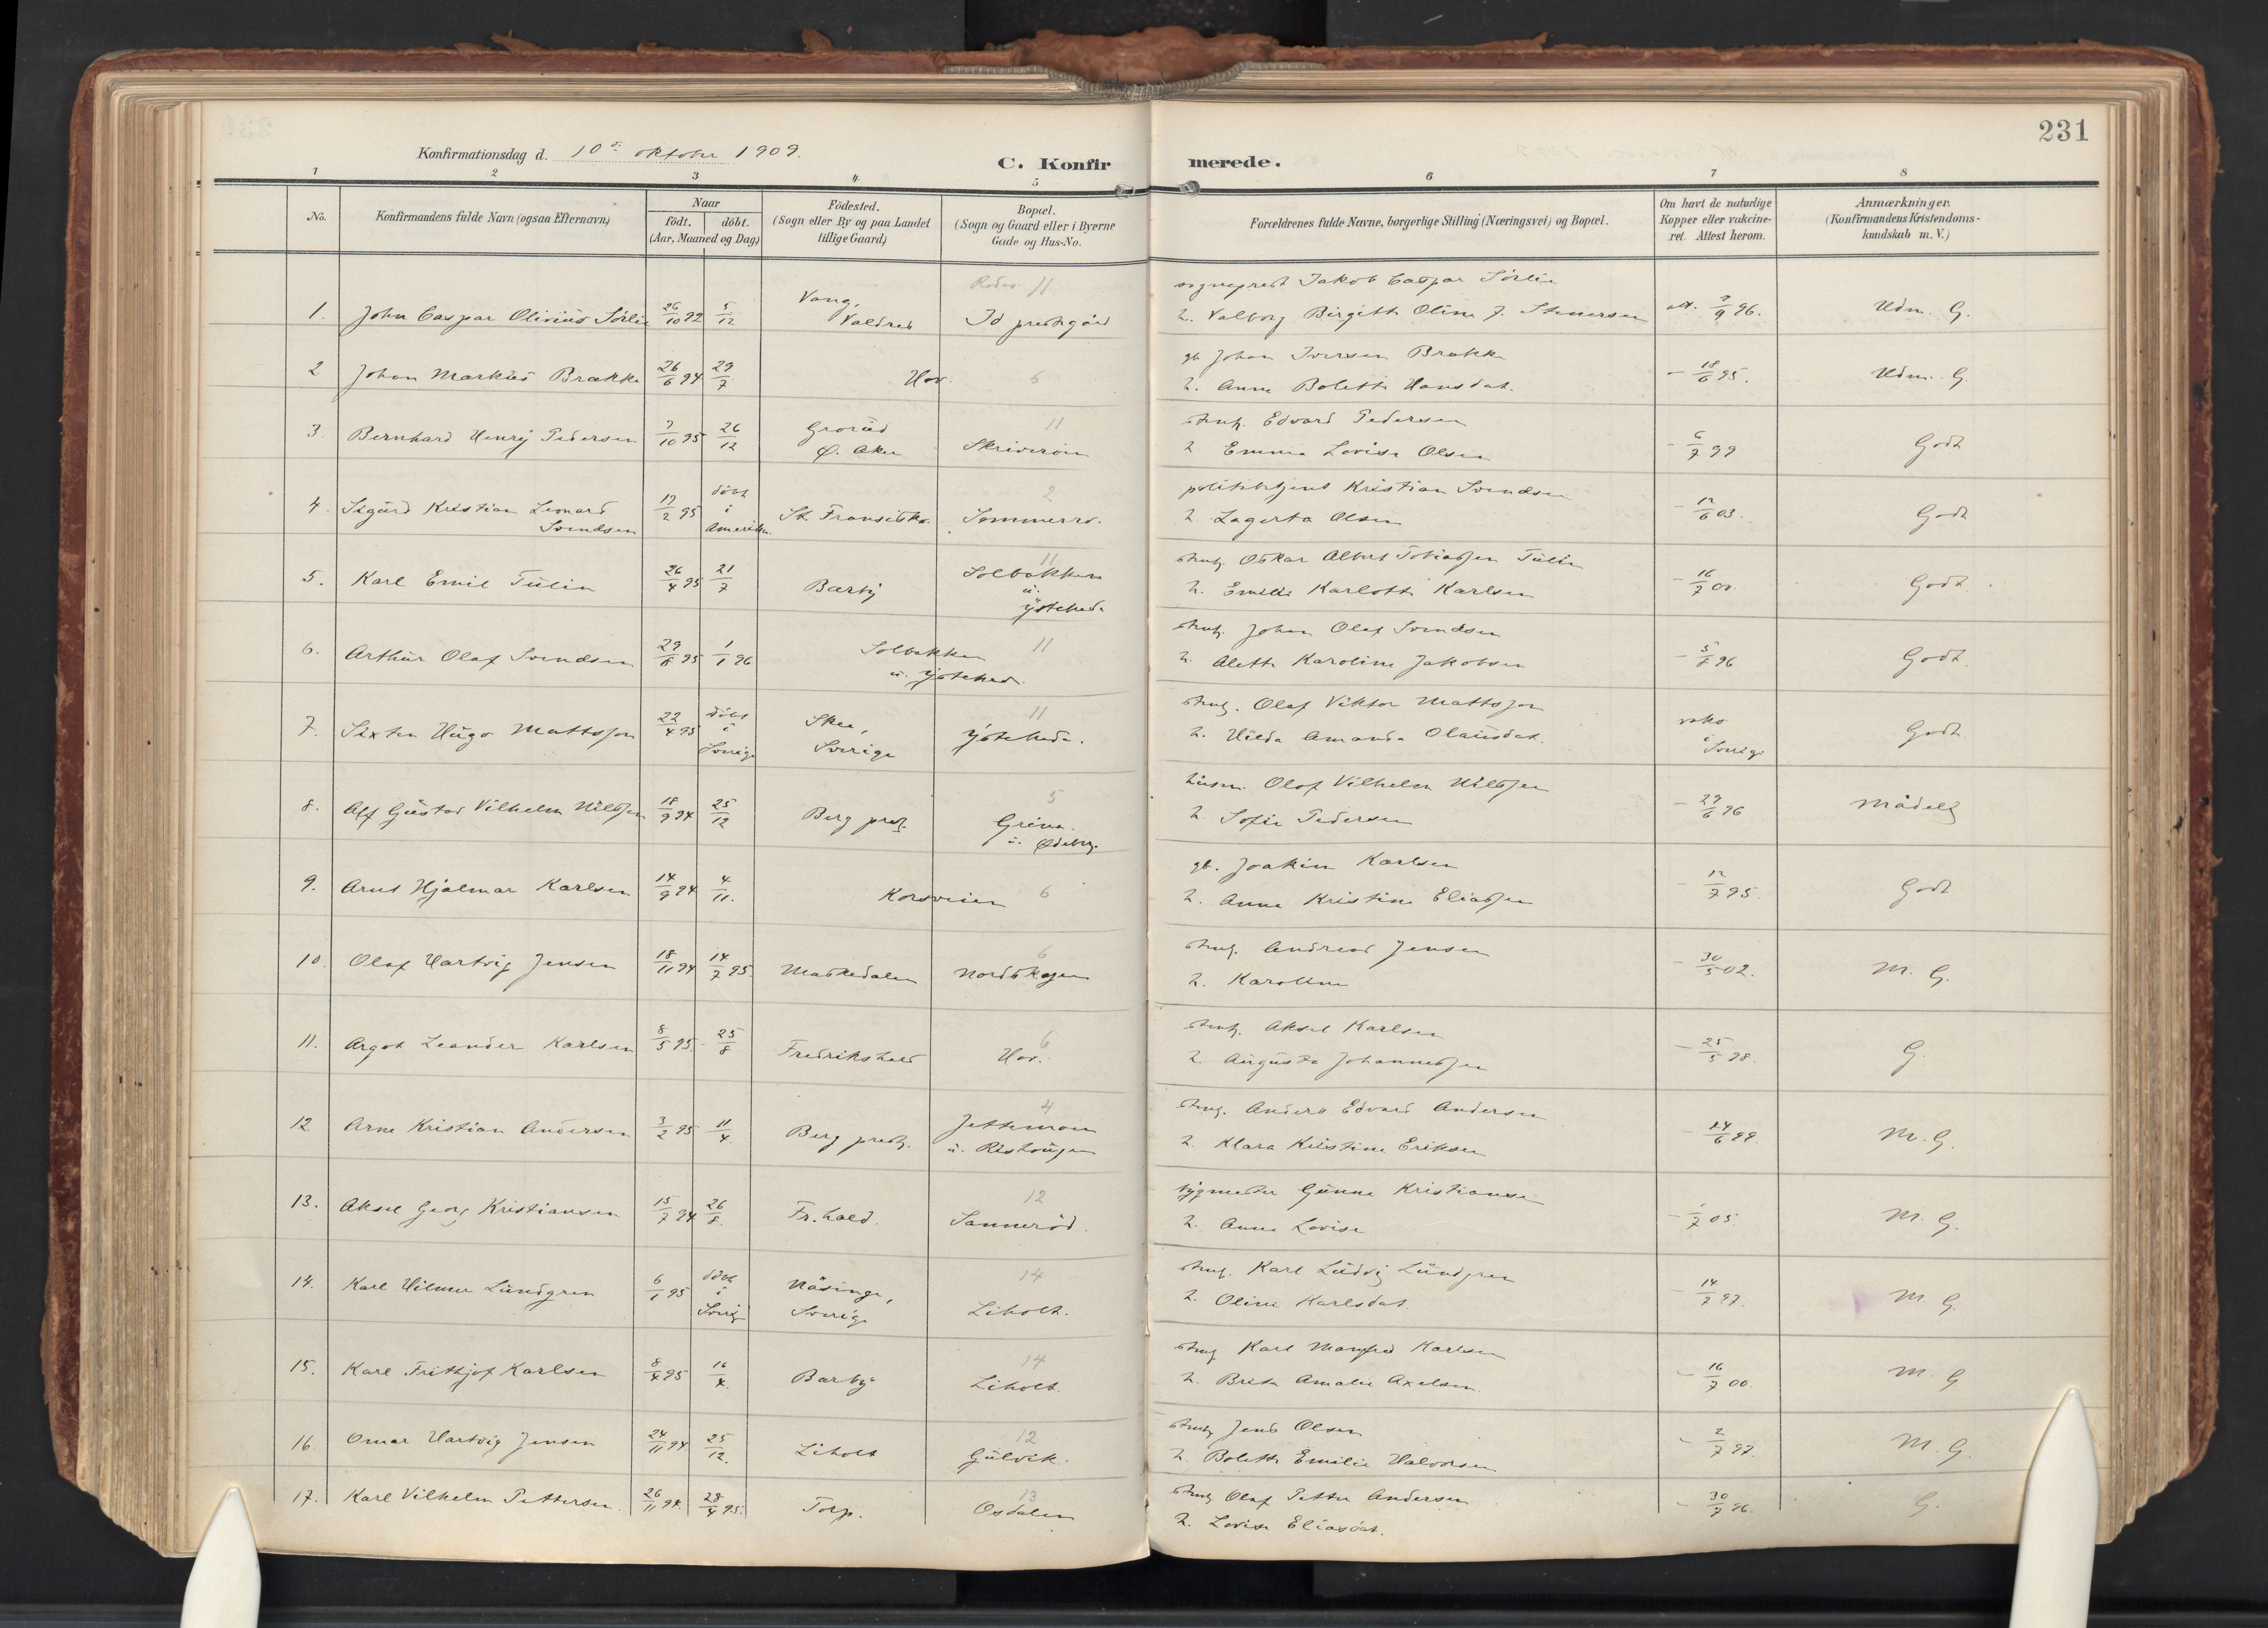 231
Konfirmationsdag d. 10de oktober 1909.
C. Konfirmerede.
1 2 3 4 5 6 7 8
No.
Konfirmandens fulde Navn (ogsaa Efternavn)
Naar
födt. döbt.
(Aar, Maaned og Dag)
Födested.
(Sogn eller By og paa Landet
tillige Gaard)
Bopæl.
(Sogn og Gaard eller i Byerne
Gade og Hus-No.
Forældrenes fulde Navne, borgerlige Stilling (Næringsvei) og Bopæl.
Om havt de naturlige
Kopper eller vakcine-
ret. Attest herom.
Anmærkninger.
(Konfirmandens Kristendoms-
kundskab m. V.)
1. John Caspar Olivius Sörlie 26/10 92 5/12 Vang, Valdres 11 Id prestgård
sogneprest Jakob Caspar Sörlie
h. Valborg Birgitte Oline J. Stenersen att. 7/9 96. Udm. G.
2 Johan Markus Brække 26/6 94 29/7 Hov. 6
gb Johan Iversen Brække
h. Anne Bolette Hansdat. - 18/6 95. Udm. G.
3. Bernhard Henry Pedersen 7/10 95 26/12 Grorud Ø. Aker 11
Edvard Pedersen
h Emma Lovise Olsen - 6/7 99 Godt
4. Sigurd Kristian Leonard Svendsen 17/2 95 döbt i Amerika St. Fransisko. 2 Sommerro.
politibetjent Kristian Svendsen
h. Lagerta Olsen - 12/6 03. Godt
5. Karl Emil Tulin 26/4 95 21/7 Barby 11 Solbakken u. Ystehede
Oskar Albert Tobiassen Tulin
h. Emilie Karlotte Karlsen - 16/7 00. Godt.
6. Arthur Olaf Svendsen 29/8 95 1/1 96 Solbakken u. Ystehed. 11
Johan Olaf Svendsen
h. Alette Karoline Jakobsen - 5/8 96 Godt.
7. Sixten Hugo Mattsson 22/4 95 döbt i Sverige Skee, Sverige 11 Ystehede.
Olaf Viktor Mattsson
h. Hilda Amanda Olausdat. vaks. i Sverige Godt
8. Alf Gustav Vilhelm Nilssen 18/9 94 25/12 Berg prestg. 5
husm. Olaf Vilhelm Nilssen
h. Sofie Pedersen - 29/6 96 Mådelg
9. Arnt Hjalmar Karlsen 14/9 94 4/11. Korsveien 6
gb. Joakim Karlsen
h. Anna Kristine Eliassen - 12/7 95. Godt
10. Olaf Hartvig Jensen 18/11 94 14/7 95. Maskedalen 6 Nordskogen
Andreas Jensen
h. Karoline - 30/5 02. M. G.
11. Argot Leander Karlsen 8/5 95. 25/8 Fredrikshald 6 Hov.
Aksel Karlsen
h. Augusta Johannessen - 25/5 98. G.
12 Arne Kristian Andersen 3/2 95 11/4. Berg prestg. 4
Anders Edvard Andersen
h. Klara Kristine Eriksen - 14/6 99. M. G.
13. Aksel Georg Kristiansen 15/7 94 26/8. Fr. hald. 12 Sannerød.
bygmester Gunne Kristiansen
h. Anna Lovise - 1/7 05. M. G.
14. Karl Hilmer Lundgren 6/1 95 döbt i Sverig Näsinge, Sverige 14 Liholt.
Karl Ludvig Lundgren
h. Oline Karlsdat. - 14/7 97. M. G.
15. Karl Frithjof Karlsen 8/4 95 16/4. Barby 14 Liholt.
Karl Manfred Karlsen
h. Brita Amalie Axelsen. - 16/7 00. M. G.
16. Omar Hartvig Jensen 24/11 94. 25/12. Liholt 12 Gulvik.
Jens Olsen
h. Bolette Emilie Halvorsen - 2/7 97. M. G.
17. Karl Vilhelm Pettersen. 26/11 94. 28/4 95. Torp. 13 Osdalen
Olaf Petter Andersen
h. Lovise Eliasdat. - 30/7 96. G.